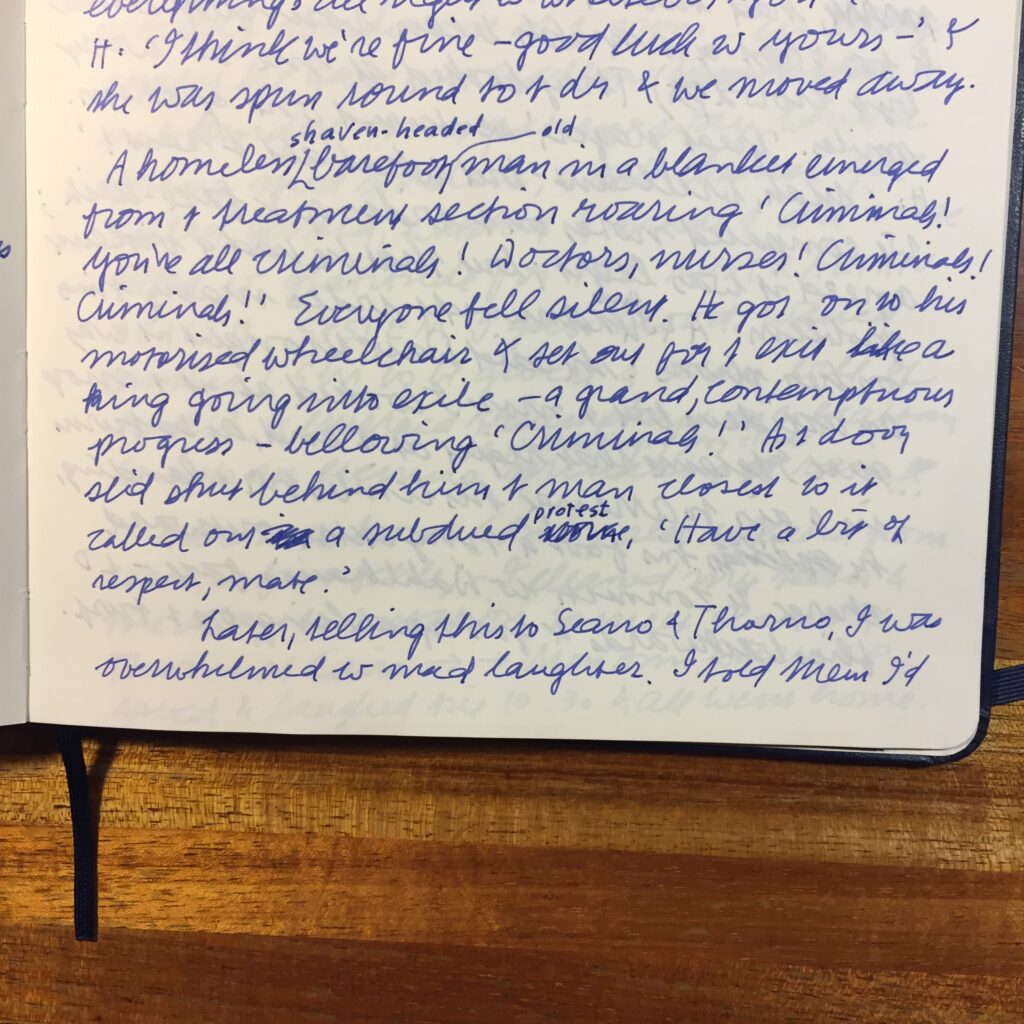 everything's all right
H: 'I think we're fine – good luck w yours –' &
she was spun round to t dr & we moved away.
shaven-headed old
A homeless, barefoot man in a blanket emerged
from t treatment section roaring 'Criminals!
You're all criminals! Doctors, nurses! Criminals!
Criminals!' Everyone fell silent. He got on to his
motorised wheelchair & set out for t exit like a
king going into exile – a grand, contemptuous
progress – bellowing 'Criminals!' As t doors
slid shut behind him t man closest to it
called out a subdued protest, 'Have a bit of
respect, mate.'
Later, telling this to & , I was
overwhelmed w mad laughter. I told them I'd